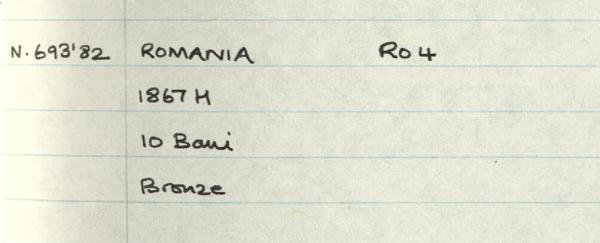 N. 693'82 ROMANIA Ro 4
1867 H
10 Bani
Bronze